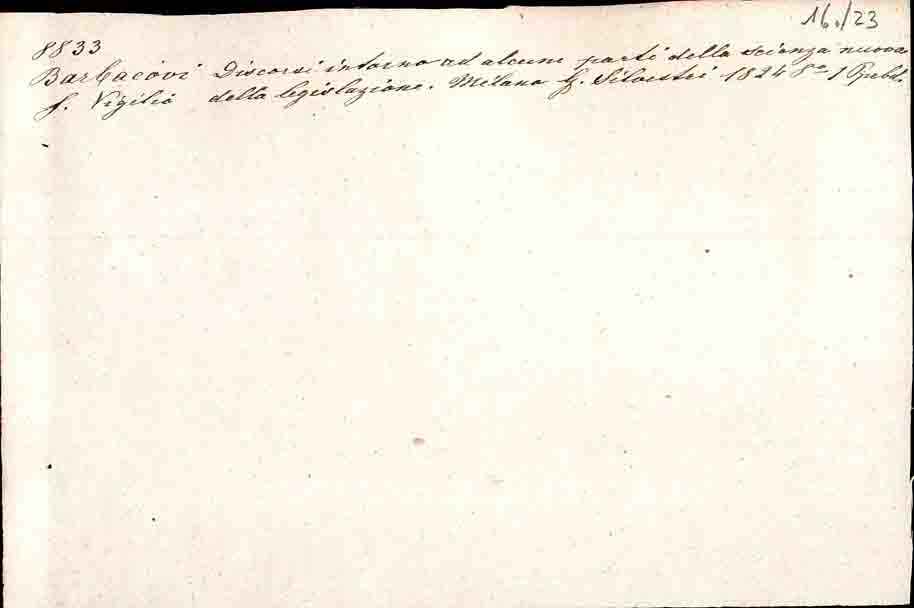 16./23
8833
Barbacovi Discorsi intorno ad alcune parti della scienza nuova
f. Vigilio della legislazione. Milano G. Silvestri 1824 8vo 1